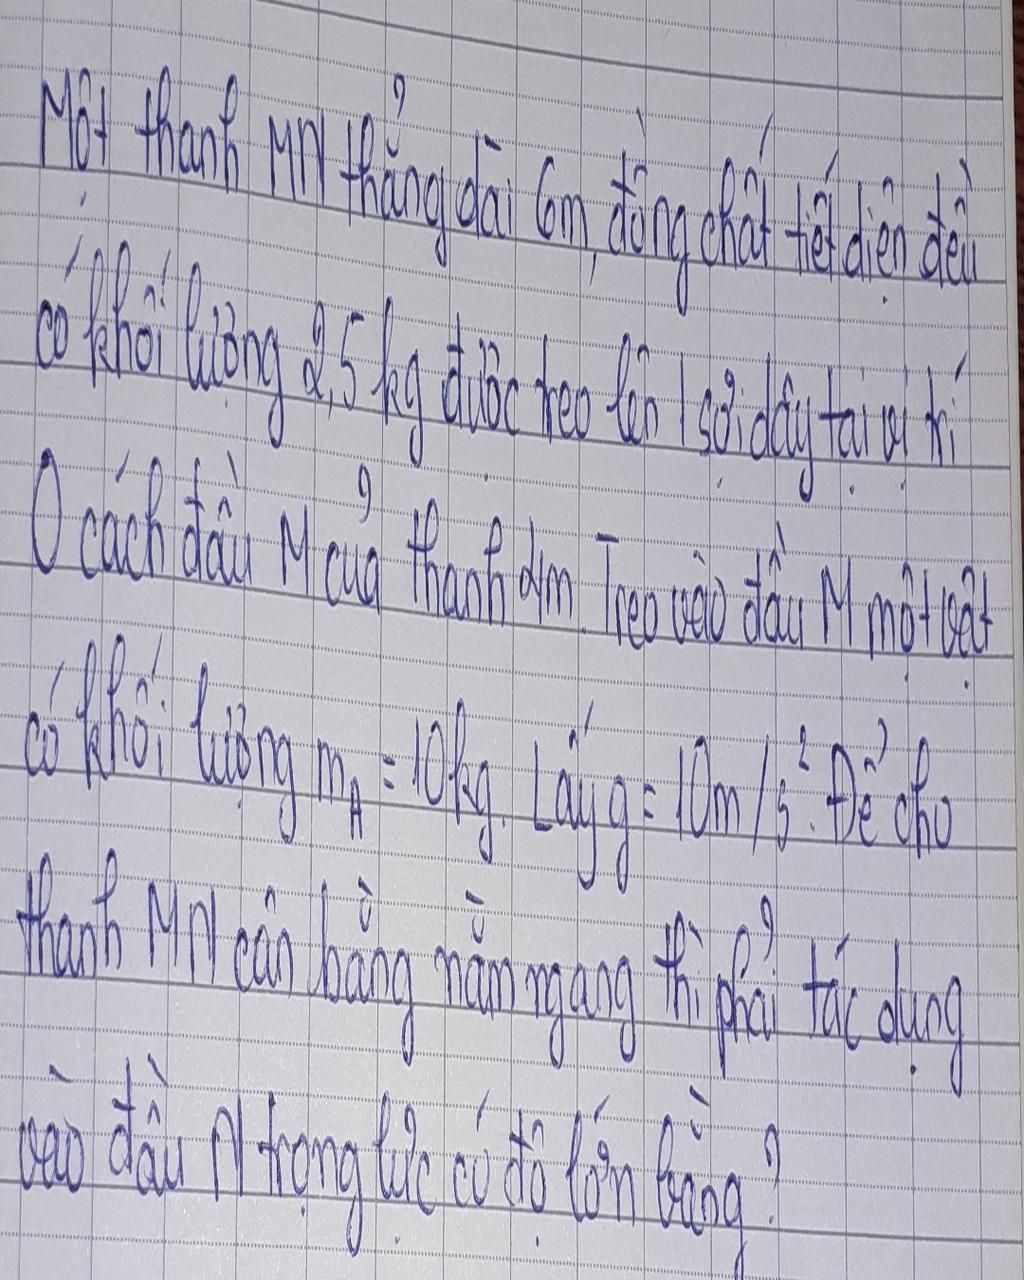 Một thanh MN thẳng dài 6m, đồng chất tiết diện đều
có khối lượng 2,5 kg được treo lên 1 sợi dây tại vị trí
O cách đầu M của thanh 4m. Treo vào đầu M một vật
có khối lượng mA = 10kg. Lấy g = 10m/s². Để cho
thanh MN cân bằng nằm ngang thì phải tác dụng
vào đầu N trọng lực có độ lớn bằng?